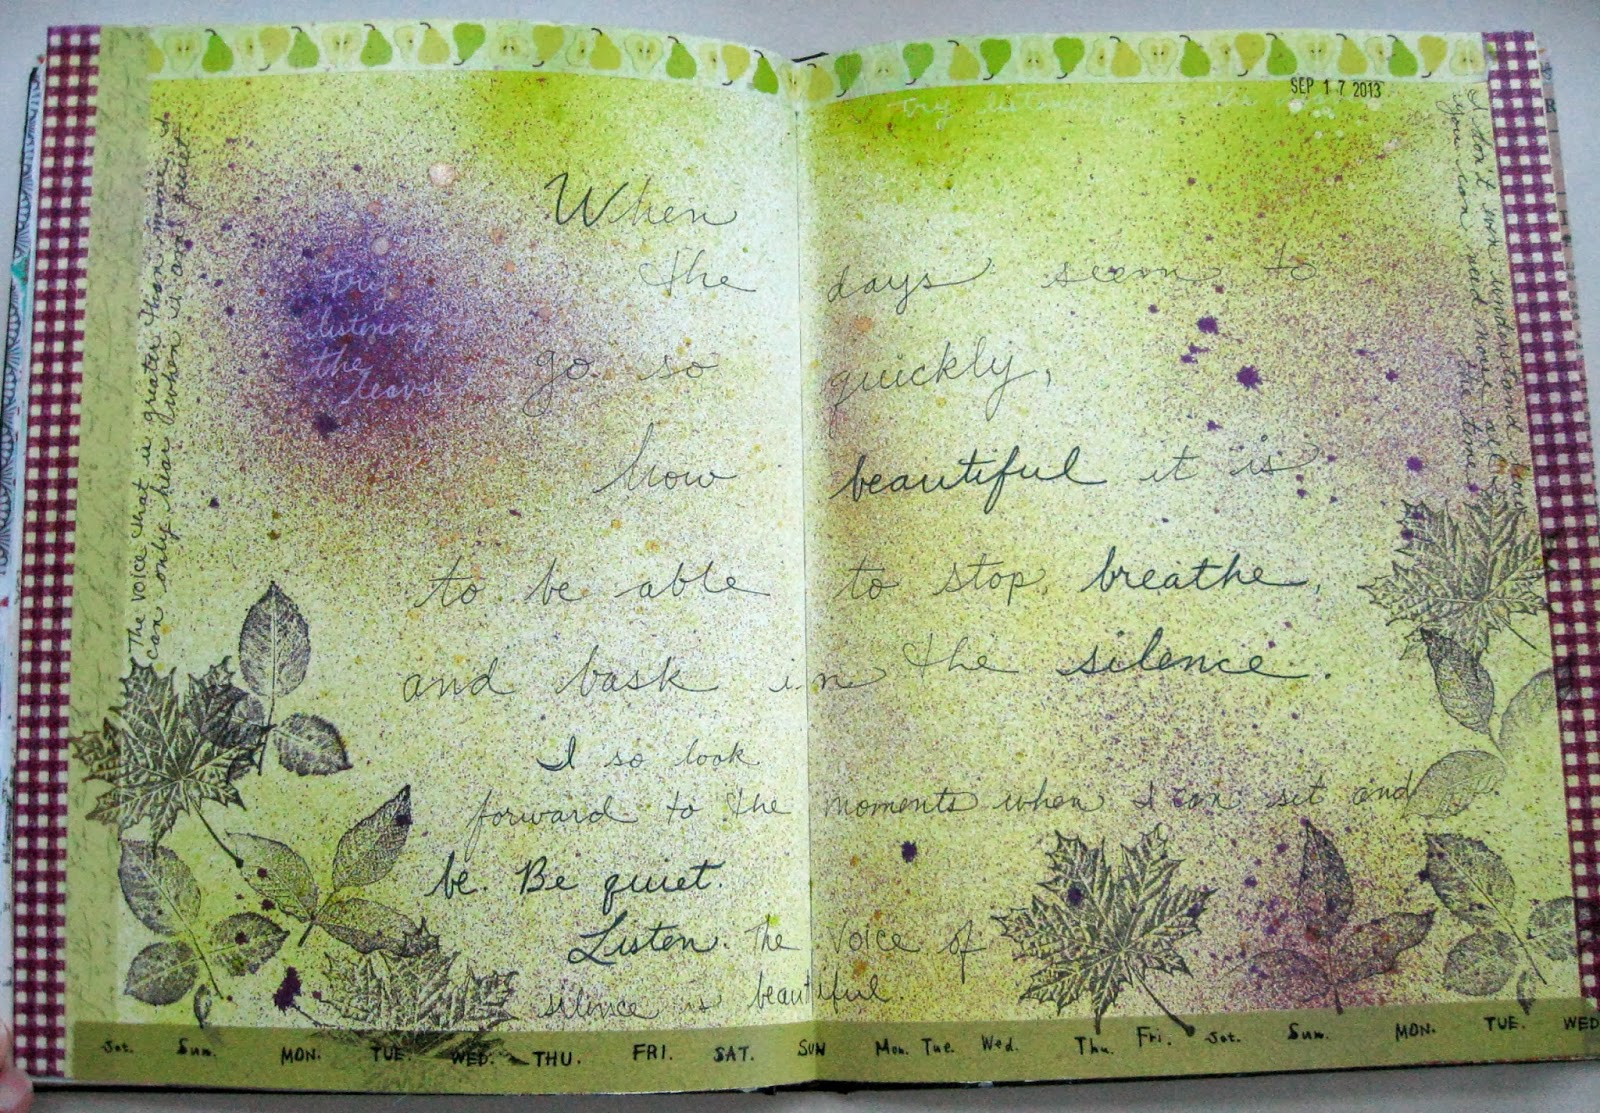 SEP 17 2013
try listening to the
When
the days seem to
go so quickly,
how beautiful it is
to be able to stop, breathe,
and bask in the silence.
I so look
forward to the moments when I can sit and
be. Be quiet.
Listen. The voice of
silence is beautiful.
try
listening to
the
leaves
The voice that is greater than mine I
can only hear when I am quiet.
I don't understand
you can need more the time
Sat. Sun. MON. TUE. WED. THU. FRI. SAT. SUN Mon. Tue. Wed. Thu. Fri. Sat. Sun. MON. TUE. WED